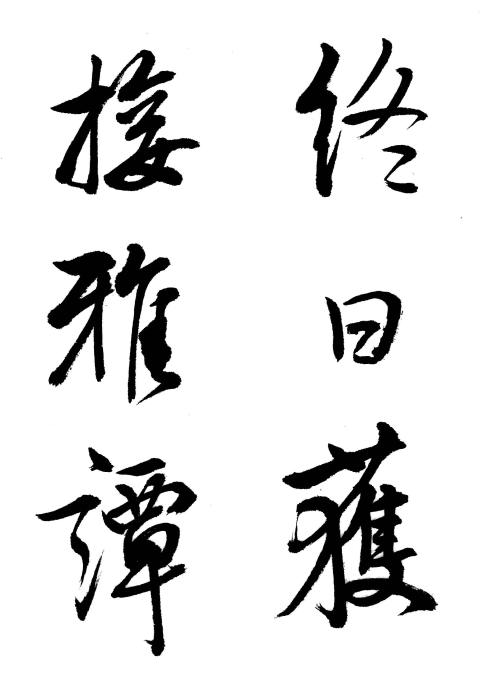 終日獲
接雅譚